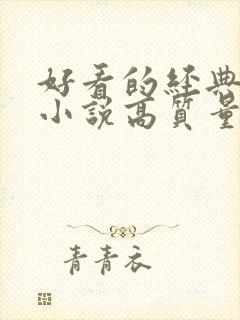 好看的经典
小說高質量
青青衣